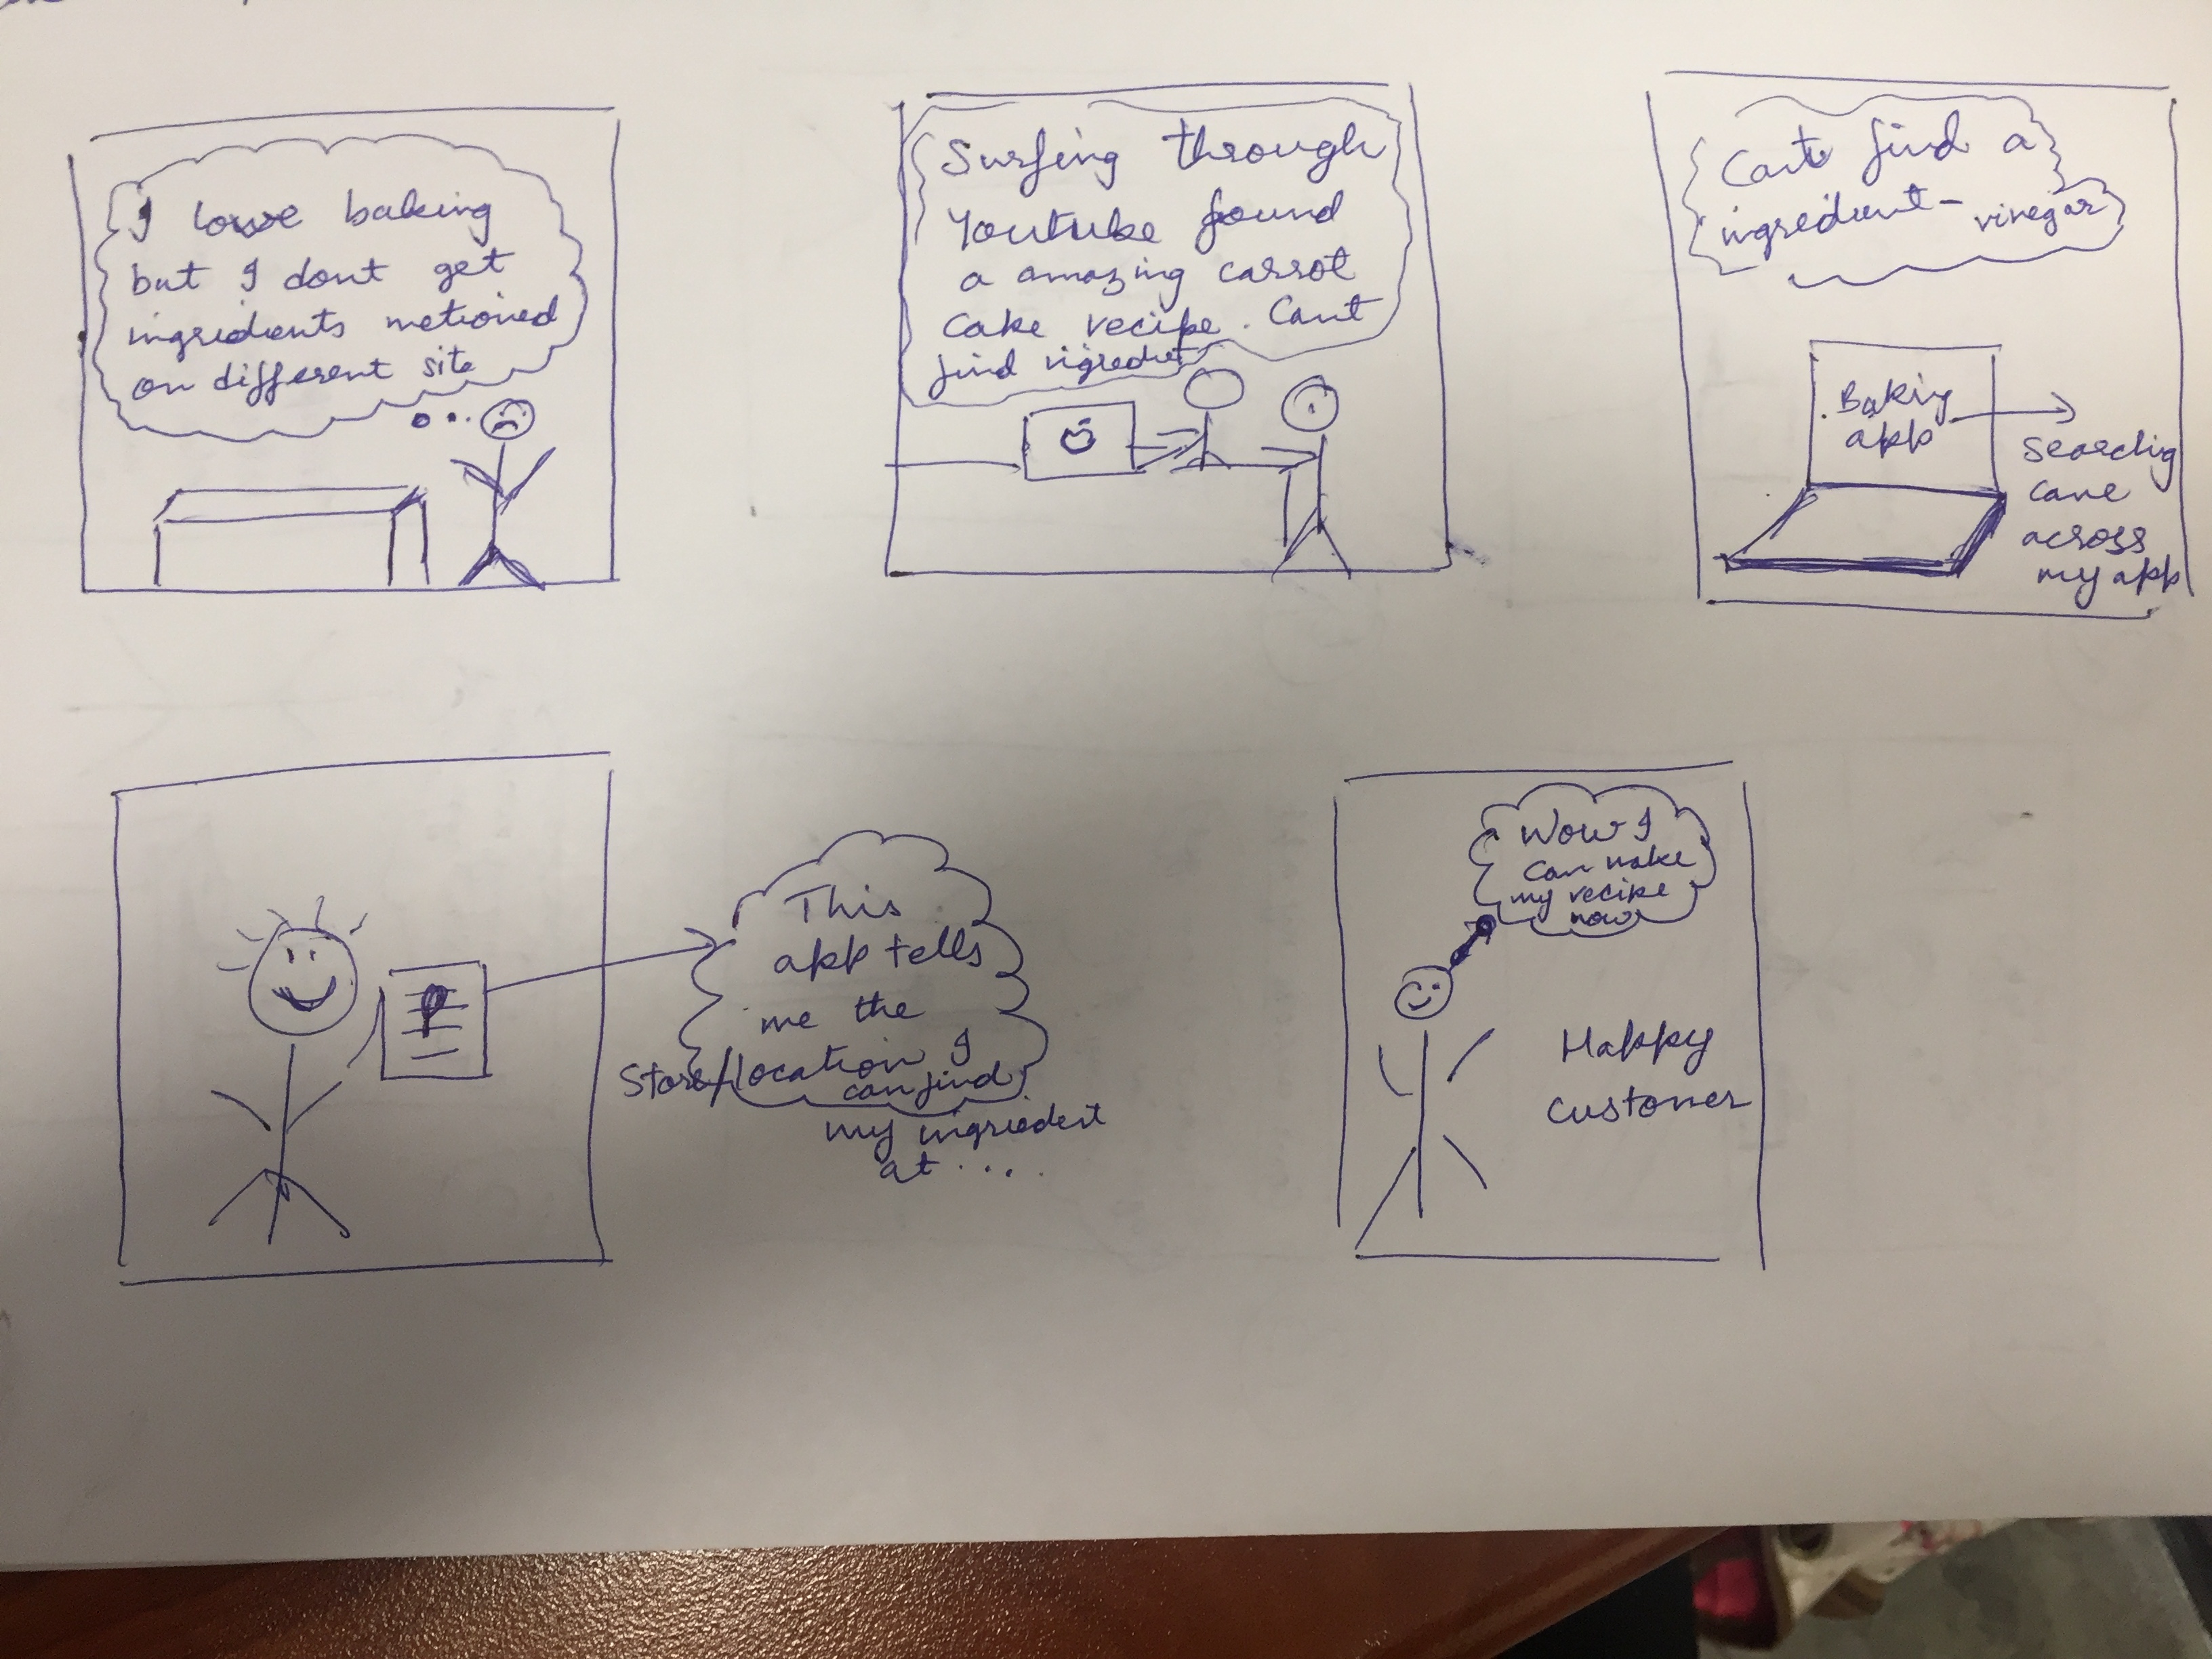 I love baking
but I dont get
ingredients metioned
on different site
Surfing through
Youtube found
a amazing carrot
cake recipe. Cant
find ingredient
Cant find a
ingredient - vinegar
Baking
app
Searching
came
across
my app
This
app tells
me the
Store/location I
can find
my ingriedent
at ....
Wow I
can make
my recipe
now
Happy
customer